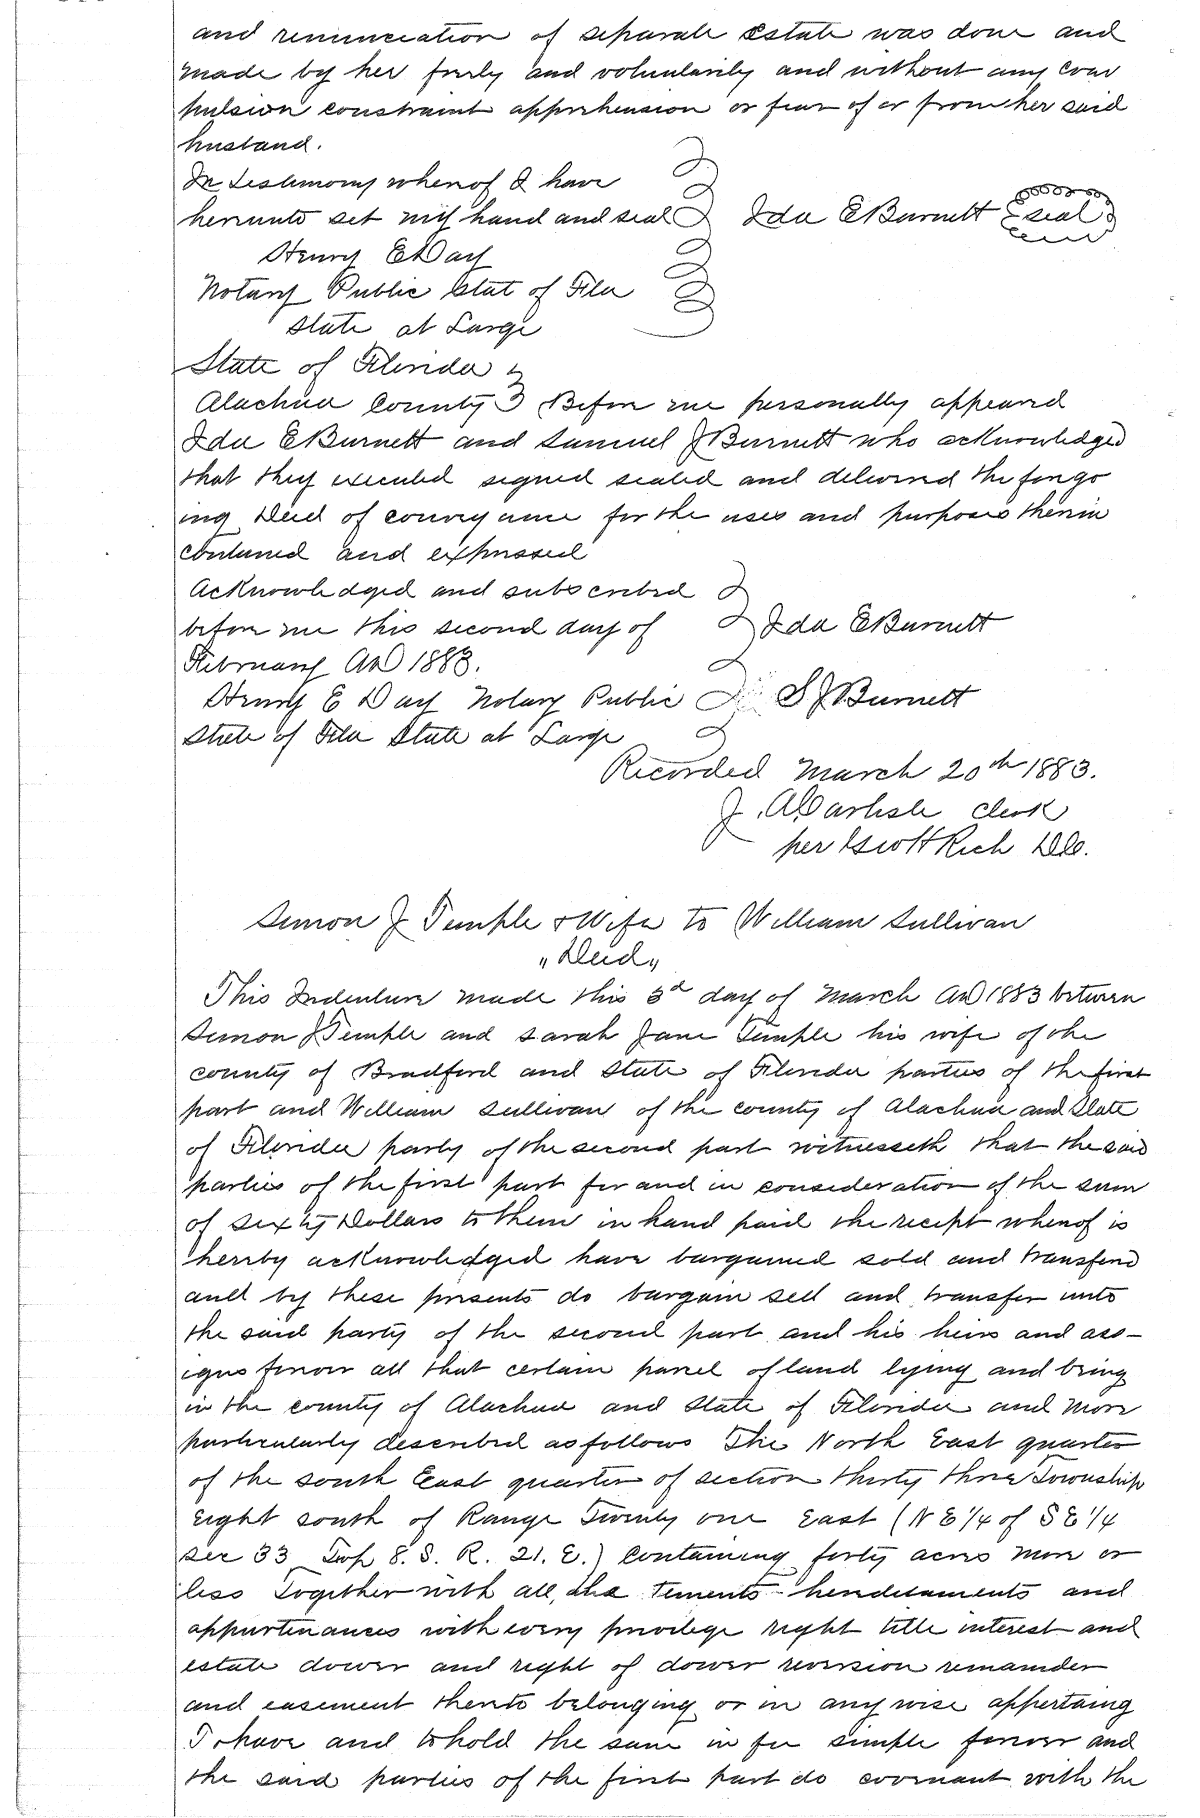 and renunciation of separate Estate was done and
made by her freely and voluntarily and without any com
pulsion constraint apprehension or fear of or from her said
husband.
In testimony whereof I have
hereunto set my hand and seal Ida E Burnett seal
Henry E Day
Notary Public Stat of Fla
State at Large
State of Florida
Alachua County Before me personally appeared
Ida E Burnett and Samuel J Burnett who acknowledged
that they executed signed sealed and delivered the forego
ing Deed of conveyance for the uses and purposes therein
contained and expressed
Acknowledged and subscribed
before me this second day of Ida E Burnett
February AD 1883.
Henry E Day Notary Public S J Burnett
State of Fla State at Large
Recorded March 20th 1883.
J. A Carlisle Clerk
per Rich DC.
Simon J Temple & Wife to William Sullivan
"Deed"
This Indenture made this 3d day of March AD 1883 between
Simon J Temple and Sarah Jane Temple his wife of the
county of Bradford and State of Florida parties of the first
part and William Sullivan of the county of Alachua and State
of Florida party of the second part witnesseth that the said
parties of the first part for and in consideration of the sum
of sixty Dollars to them in hand paid the recipt whereof is
hereby acknowledged have bargained sold and transferd
and by these presents do bargain sell and transfer unto
the said party of the second part and his heirs and ass-
igns forever all that certain parcel of land lying and being
in the county of Alachua and State of Florida and more
particularly described as follows The North East quarter
of the South East quarter of section thirty three Township
Eight south of Range Twenty one East (N E 1/4 of S E 1/4
Sec 33 Twp 8. S. R. 21. E.) containing forty acres more or
less Together with all the tements hereditaments and
appurtenances with every privilege right title interest and
estate dower and right of dower reversion remainder
and easement thereto belonging or in any wise appertaing
To have and to hold the same in fee simple forever and
the said parties of the first part do covenant with the